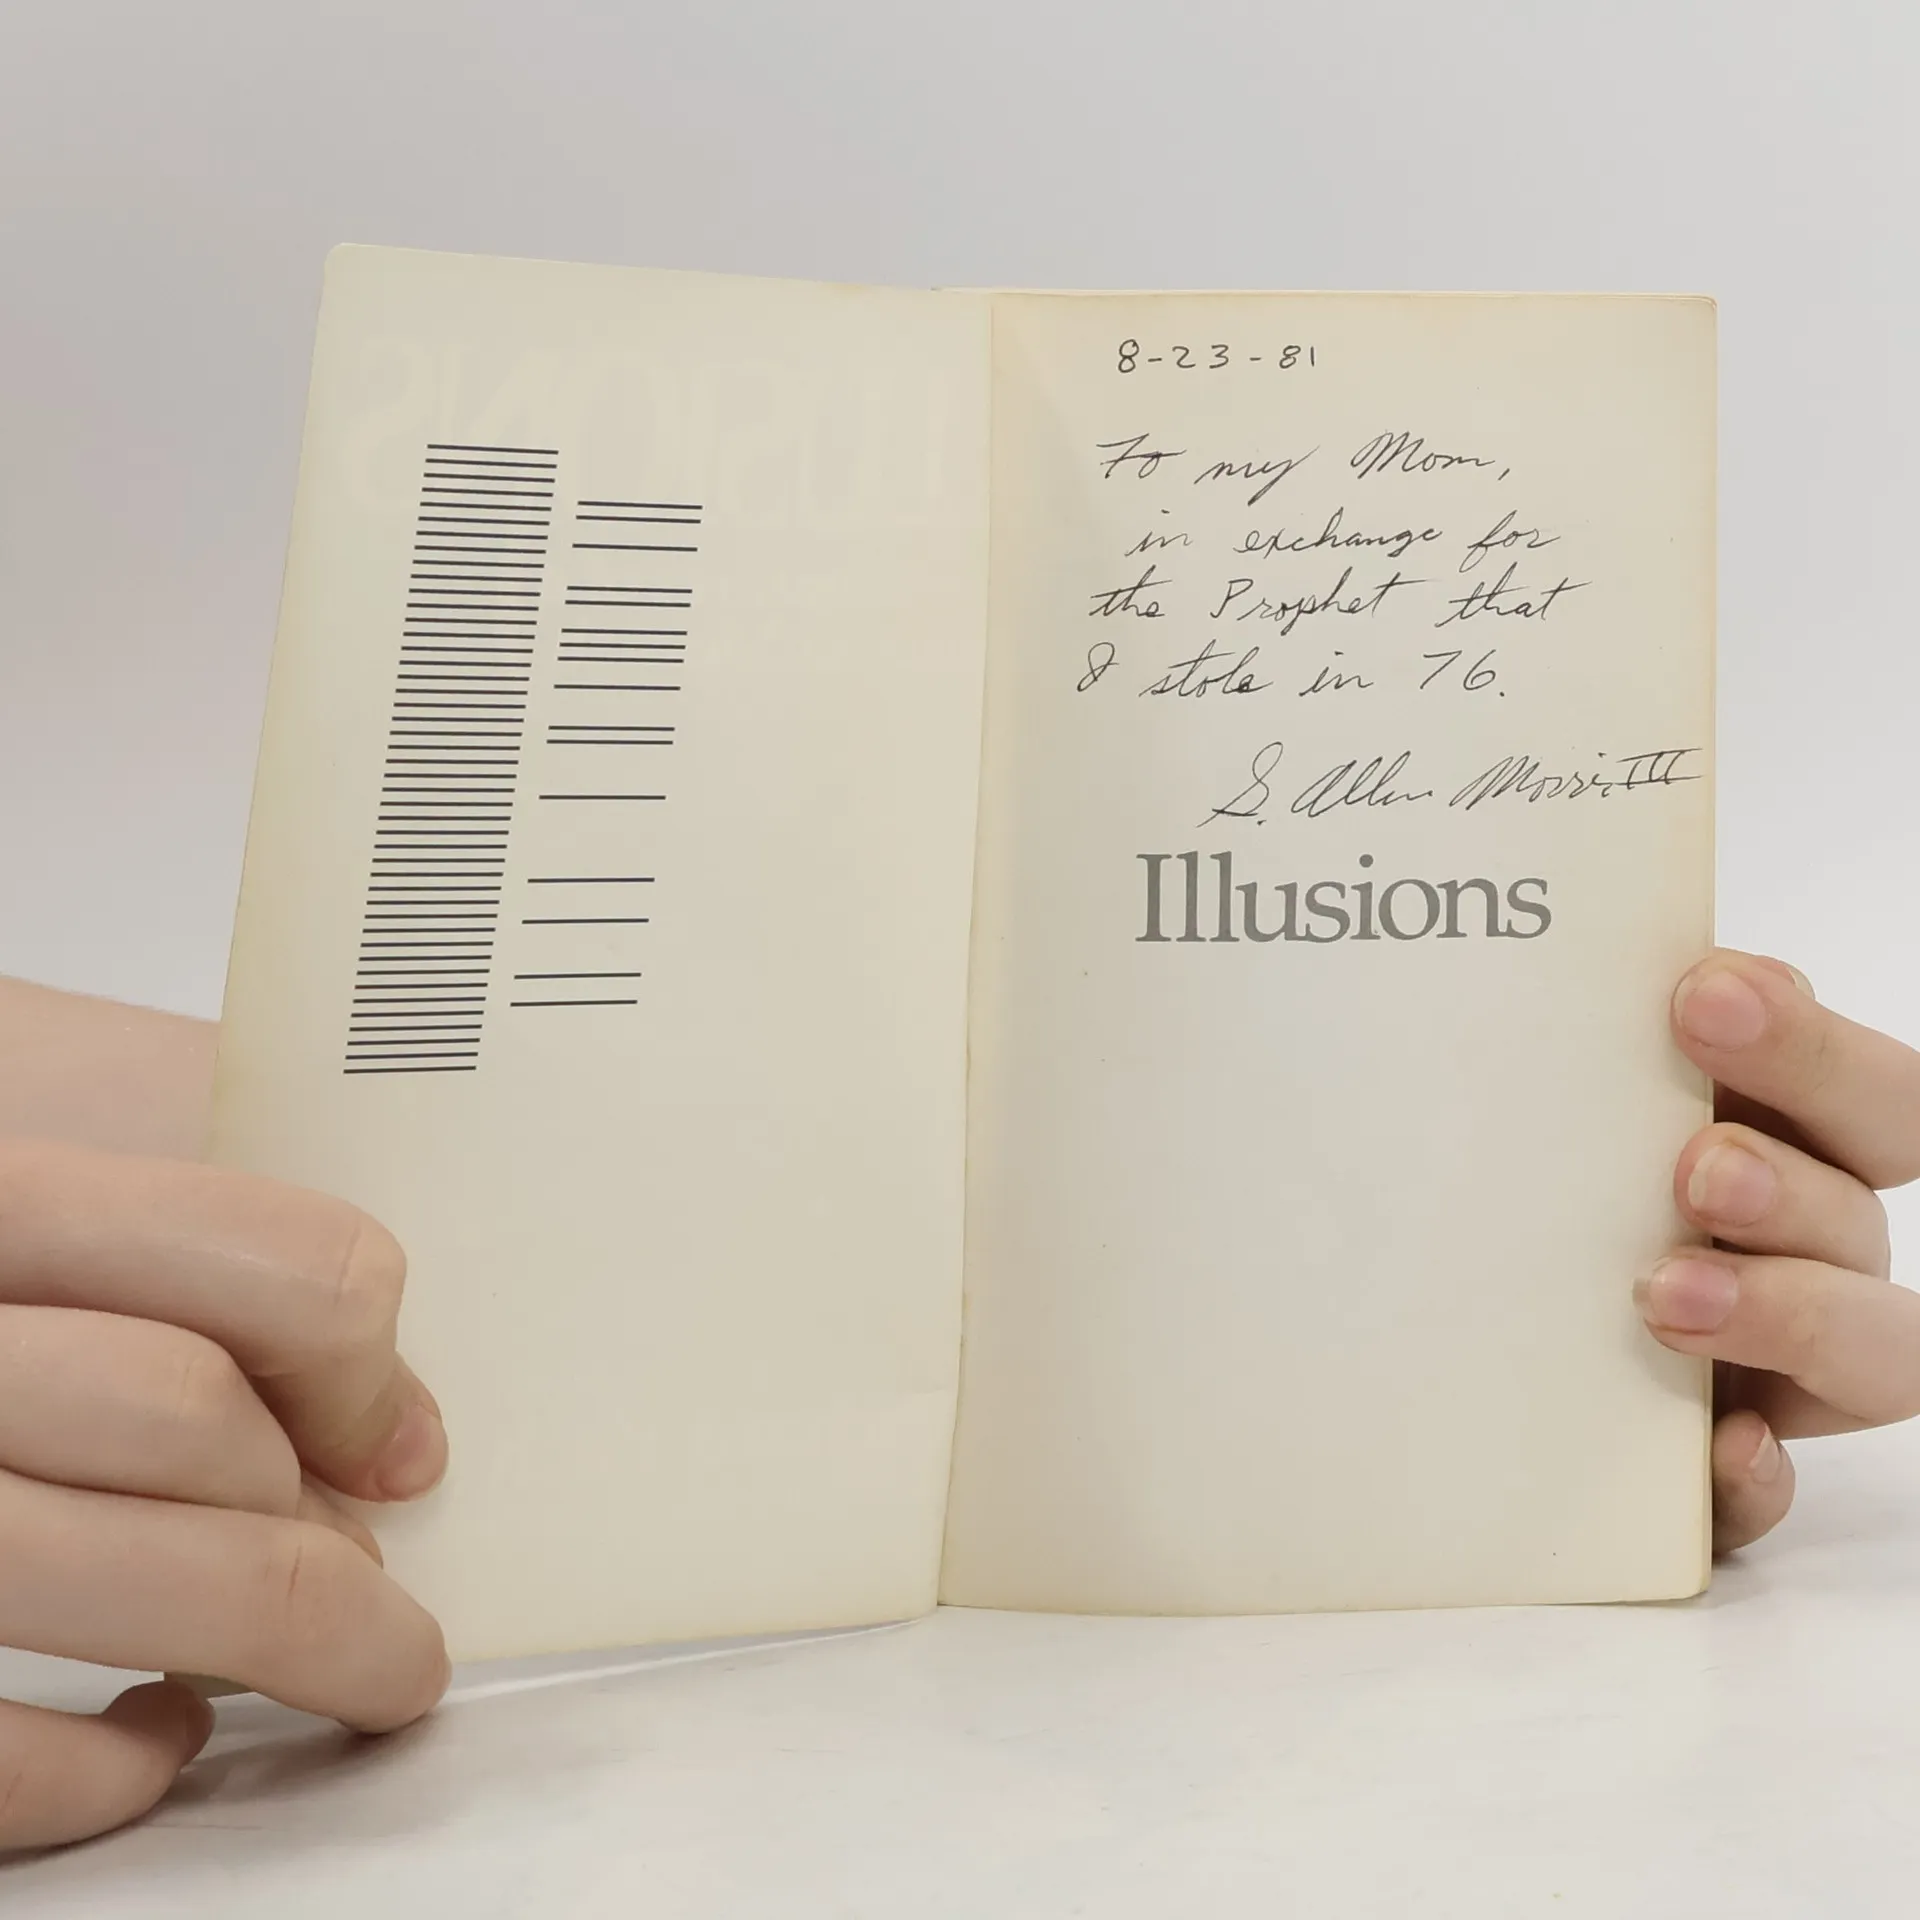 8-23-81
To my Mom,
in exchange for
the Prophet that
I stole in 76.
S. Allen Morris III
Illusions